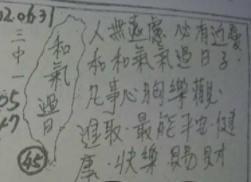 020631
三中一
05
47
和氣過日
45
人無遠慮必有近憂
和和氣氣過日子.
凡事心胸樂觀.
進取.最能平安.健
康.快樂